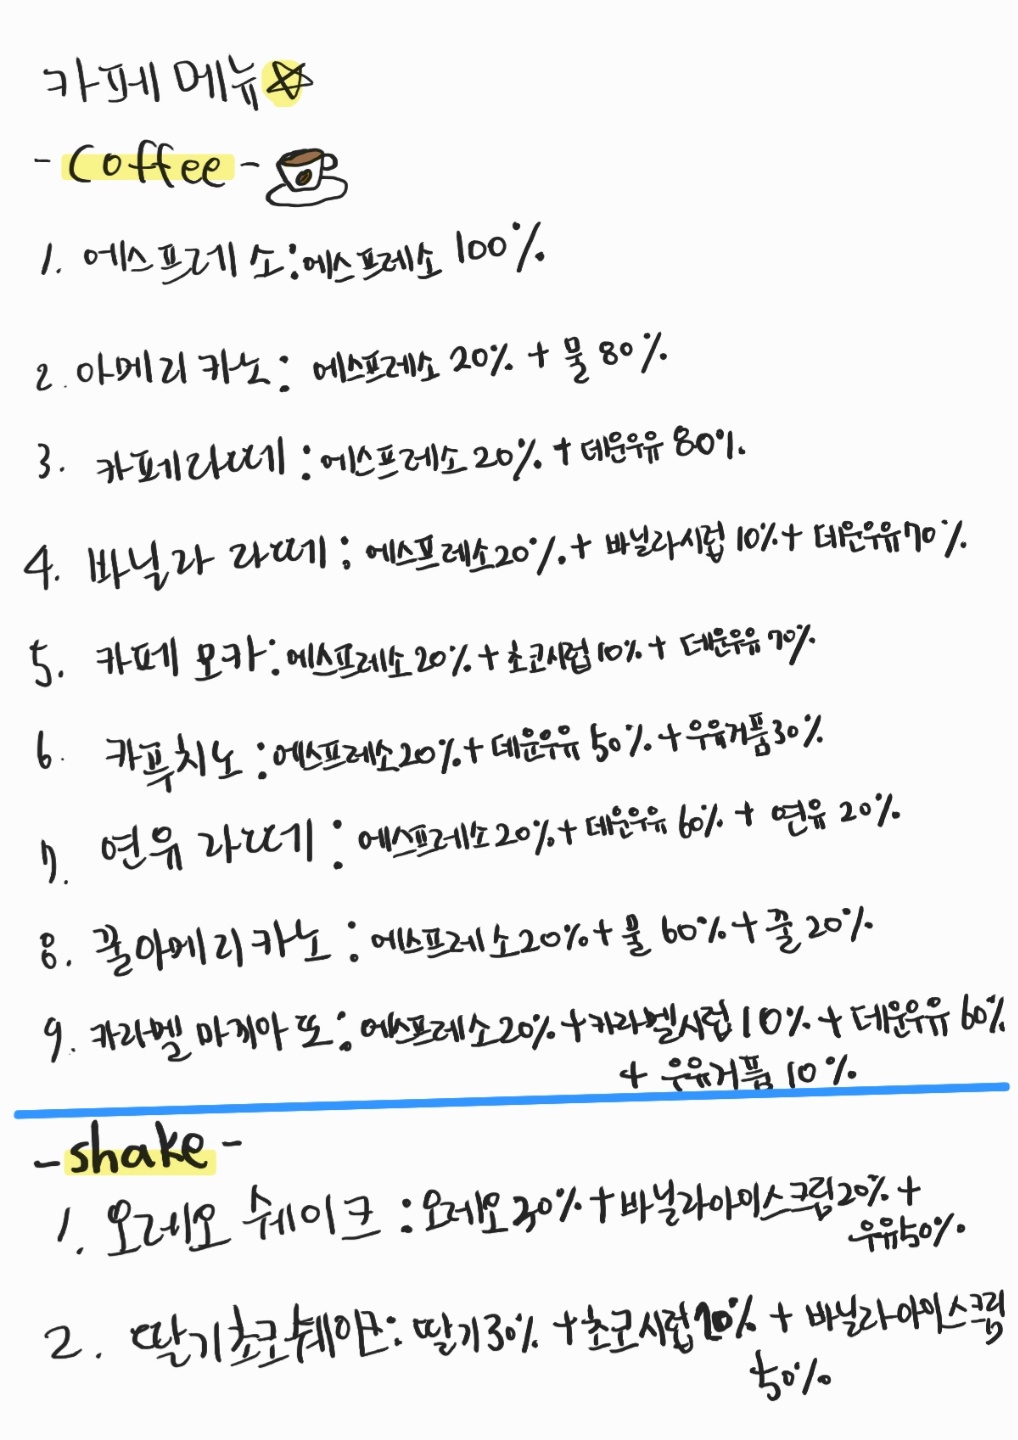 카페 메뉴
- Coffee -
1. 에스프레소 : 에스프레소 100%
2. 아메리카노 : 에스프레소 20% + 물 80%
3. 카페라떼 : 에스프레소 20% + 데운우유 80%
4. 바닐라 라떼 : 에스프레소 20% + 바닐라시럽 10% + 데운우유 70%
5. 카페 모카 : 에스프레소 20% + 초코시럽 10% + 데운우유 70%
6. 카푸치노 : 에스프레소 20% + 데운우유 50% + 우유거품 30%
7. 연유 라떼 : 에스프레소 20% + 데운우유 60% + 연유 20%
8. 꿀아메리카노 : 에스프레소 20% + 물 60% + 꿀 20%
9. 카라멜 마끼아또 : 에스프레소 20% + 카라멜시럽 10% + 데운우유 60%
+ 우유거품 10%
- shake -
1. 오레오 쉐이크 : 오레오 30% + 바닐라아이스크림 20% +
우유 50%
2. 딸기초코쉐이크 : 딸기 30% + 초코시럽 20% + 바닐라아이스크림
50%